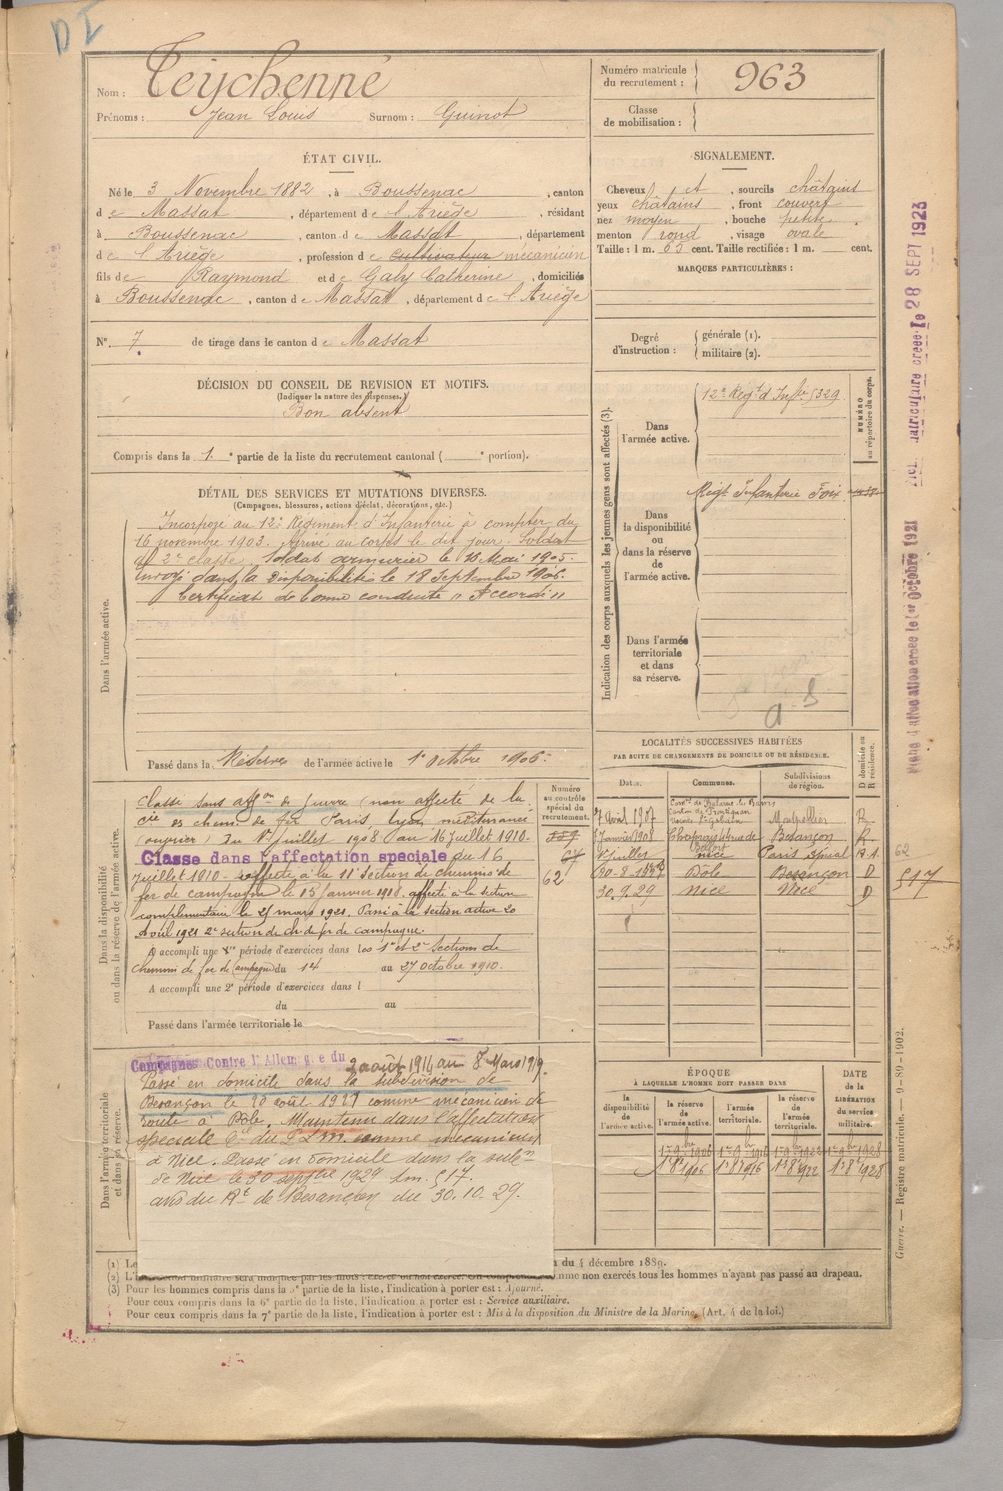 D I
Nom : Teychenné
Prénoms : Jean Louis Surnom : Guinot
Numéro matricule
du recrutement : 963
Classe
de mobilisation :
ÉTAT CIVIL.
Né le 3 Novembre 1882, à Boussenac, canton
de Massat, département de l'Ariège, résidant
à Boussenac, canton de Massat, département
de l'Ariège, profession de cultivateur mécanicien
fils de Raymond et de Galy Catherine, domiciliés
à Boussenac, canton de Massat, département de l'Ariège
N° 7 de tirage dans le canton de Massat
SIGNALEMENT.
Cheveux et, sourcils châtains
yeux châtains, front couvert
nez moyen, bouche petite
menton rond, visage ovale
Taille : 1 m. 65 cent. Taille rectifiée : 1 m. cent.
MARQUES PARTICULIÈRES :
Degré
d'instruction :
générale (1).
militaire (2).
DÉCISION DU CONSEIL DE REVISION ET MOTIFS.
(Indiquer la nature des dispenses.)
Bon absent
Compris dans la 1e partie de la liste du recrutement cantonal ( e portion).
DÉTAIL DES SERVICES ET MUTATIONS DIVERSES.
(Campagnes, blessures, actions d'éclat, décorations, etc.)
Dans l'armée active.
Incorporé au 12e Régiment d'Infanterie à compter du
16 novembre 1903. Arrivé au corps le dit jour. Soldat
de 2e classe. Soldat armurier le 16 Mai 1905.
Envoyé dans la disponibilité le 18 Septembre 1906.
Certificat de bonne conduite "Accordé"
Passé dans la Réserve de l'armée active le 1er Octobre 1906.
Indication des corps auxquels les jeunes gens sont affectés (3).
Dans
l'armée active.
12e Régt d'Infie 329
NUMÉRO
au répertoire du corps.
Dans
la disponibilité
ou
dans la réserve
de
l'armée active.
Régt Infanterie Foix
Dans l'armée
territoriale
et dans
sa réserve.
LOCALITÉS SUCCESSIVES HABITÉES
PAR SUITE DE CHANGEMENTS DE DOMICILE OU DE RÉSIDENCE.
Dates. Communes. Subdivisions de région. D domicile ou R résidence.
7 Avril 1907 Montpellier R.
7 Janvier 1908 Belfort Besançon R.
Juillet Nice Paris spécial
30-8-1927 Dôle Besançon D
30.9.29 Nice Nice D
62
517
Dans la disponibilité
ou dans la réserve de l'armée active.
Numéro
au contrôle
spécial du
recrutement.
62
Classé sans affon de guerre (non affecté de la
Cie des chem. de fer Paris Lyon méditerranée
(ouvrier) du 1er Juillet 1908 au 16 Juillet 1910.
Classé dans l'affectation spéciale du 16
Juillet 1910 - affecté à la 11e section de chemins de
fer de campagne le 15 Janvier 1918. affecté à la section
complémentaire le 25 mars 1921. Passé à la section active 20
Avril 1921 2e section de ch. de fer de campagne.
A accompli une 1re période d'exercices dans les 1e et 2e Sections de
chemins de fer (campagne) du 14 au 27 octobre 1910.
A accompli une 2e période d'exercices dans l
du au
Passé dans l'armée territoriale le
Dans l'armée territoriale
et dans sa réserve.
Campagnes Contre l'Allemagne du 2 août 1914 au 8 Mars 1919.
Passé en domicile dans la subdivision de
Besançon le 20 août 1927 comme mécanicien de
route à Dôle. Maintenu dans l'affectation
spéciale Cie du P L M. comme mécanicien
à Nice. Passé en domicile dans la subon
de Nice le 30 septbre 1929 lm. 517.
avis du Rt de Besançon du 30.10.29.
ÉPOQUE
À LAQUELLE L'HOMME DOIT PASSER DANS
la disponibilité de l'armée active.
la réserve de l'armée active.
l'armée territoriale.
la réserve de l'armée territoriale.
DATE
de la
LIBÉRATION
du service
militaire.
1er 8bre 1906 1er 8bre 1916 1er 8bre 1922 1er 8bre 1928
(1) Le
du 4 décembre 1889.
nme non exercés tous les hommes n'ayant pas passé au drapeau.
(3) Pour les hommes compris dans la 5e partie de la liste, l'indication à porter est : Ajourné.
Pour ceux compris dans la 6e partie de la liste, l'indication à porter est : Service auxiliaire.
Pour ceux compris dans la 7e partie de la liste, l'indication à porter est : Mis à la disposition du Ministre de la Marine. (Art. 4 de la loi.)
Guerre. — Registre matricule. — 9-89-1902.
Fiche d'affectation créée le 1er Octobre 1921
matriculaire créée le 28 SEPT 1923